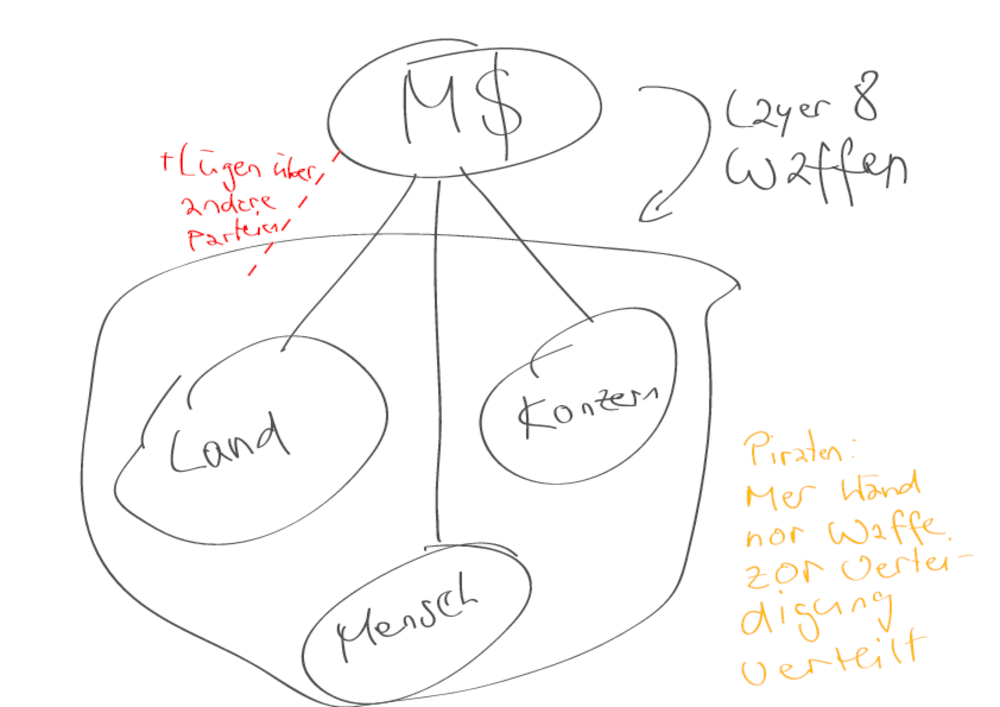 M$
Layer 8
Waffen
+Lügen über
andere
Parteien
Land
Konzern
Mensch
Piraten:
Mer händ
nor Waffe
zor Vertei-
digung
verteilt